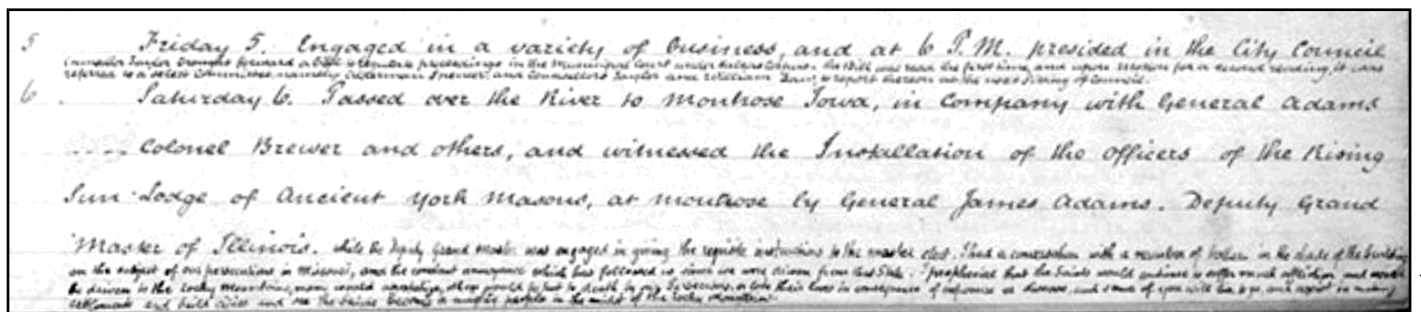 5 Friday 5. Engaged in a variety of business, and at 6 P.M. presided in the City Council
Councillor Taylor brought forward a Bill to regulate proceedings in the Municipal Court under Habeas Corpus. the Bill was read the first time, and upon motion for a second reading, it was
referred to a select Committee, namely, Alderman Spencer, and Councillors Taylor and William Law, to report thereon at the next sitting of Council.
6. Saturday 6. Passed over the River to Montrose Iowa, in company with General Adams
Colonel Brewer and others, and witnessed the Installation of the officers of the Rising
Sun Lodge of Ancient York Masons, at Montrose by General James Adams. Deputy Grand
Master of Illinois. while the Deputy Grand Master was engaged in giving the requisite instructions to the master elect. I had a conversation with a number of brethren in the shade of the building
on the subject of our persecutions in Missouri, and the constant annoyance which has followed us since we were driven from that State. I prophesied that the Saints would continue to suffer much affliction, and would
be driven to the rocky mountains, many would apostatize, others would be put to death by our persecutors, or lose their lives in consequence of exposure or disease, and some of you will live to go, and assist in making
settlements and build cities and see the Saints become a mighty people in the midst of the rocky mountains.